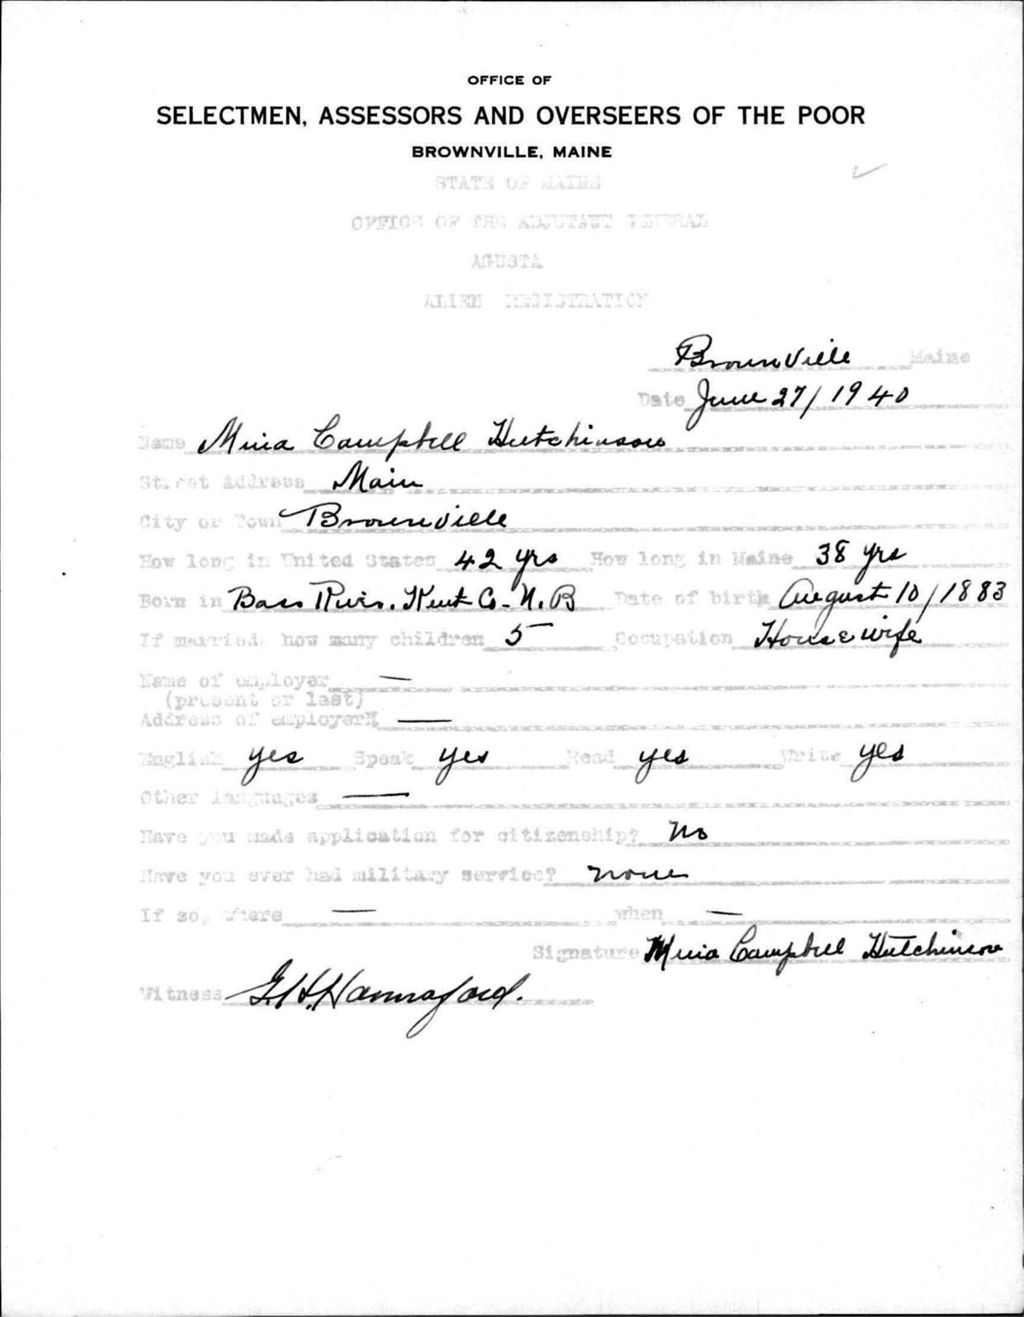 OFFICE OF
SELECTMEN, ASSESSORS AND OVERSEERS OF THE POOR
BROWNVILLE, MAINE
STATE OF MAINE
OFFICE OF THE ADJUTANT GENERAL
AGUSTA
ALIEN REGISTRATION
Brownville Maine
Date June 27/1940
Name Mina Campbell Hutchinson
Street Address Main
City or Town Brownville
How long in United States 42 yrs How long in Maine 38 yrs
Born in Bass River. Kent Co- N.B Date of birth August 10/1883
If married, how many children 5 Occupation Housewife
Name of employer —
(present or last)
Address of employer —
English yes Speak yes Read yes Write yes
Other languages —
Have you made application for citizenship? No
Have you ever had military service? none
If so, where — when —
Signature Mina Campbell Hutchinson
Witness G.H. Hannaford.